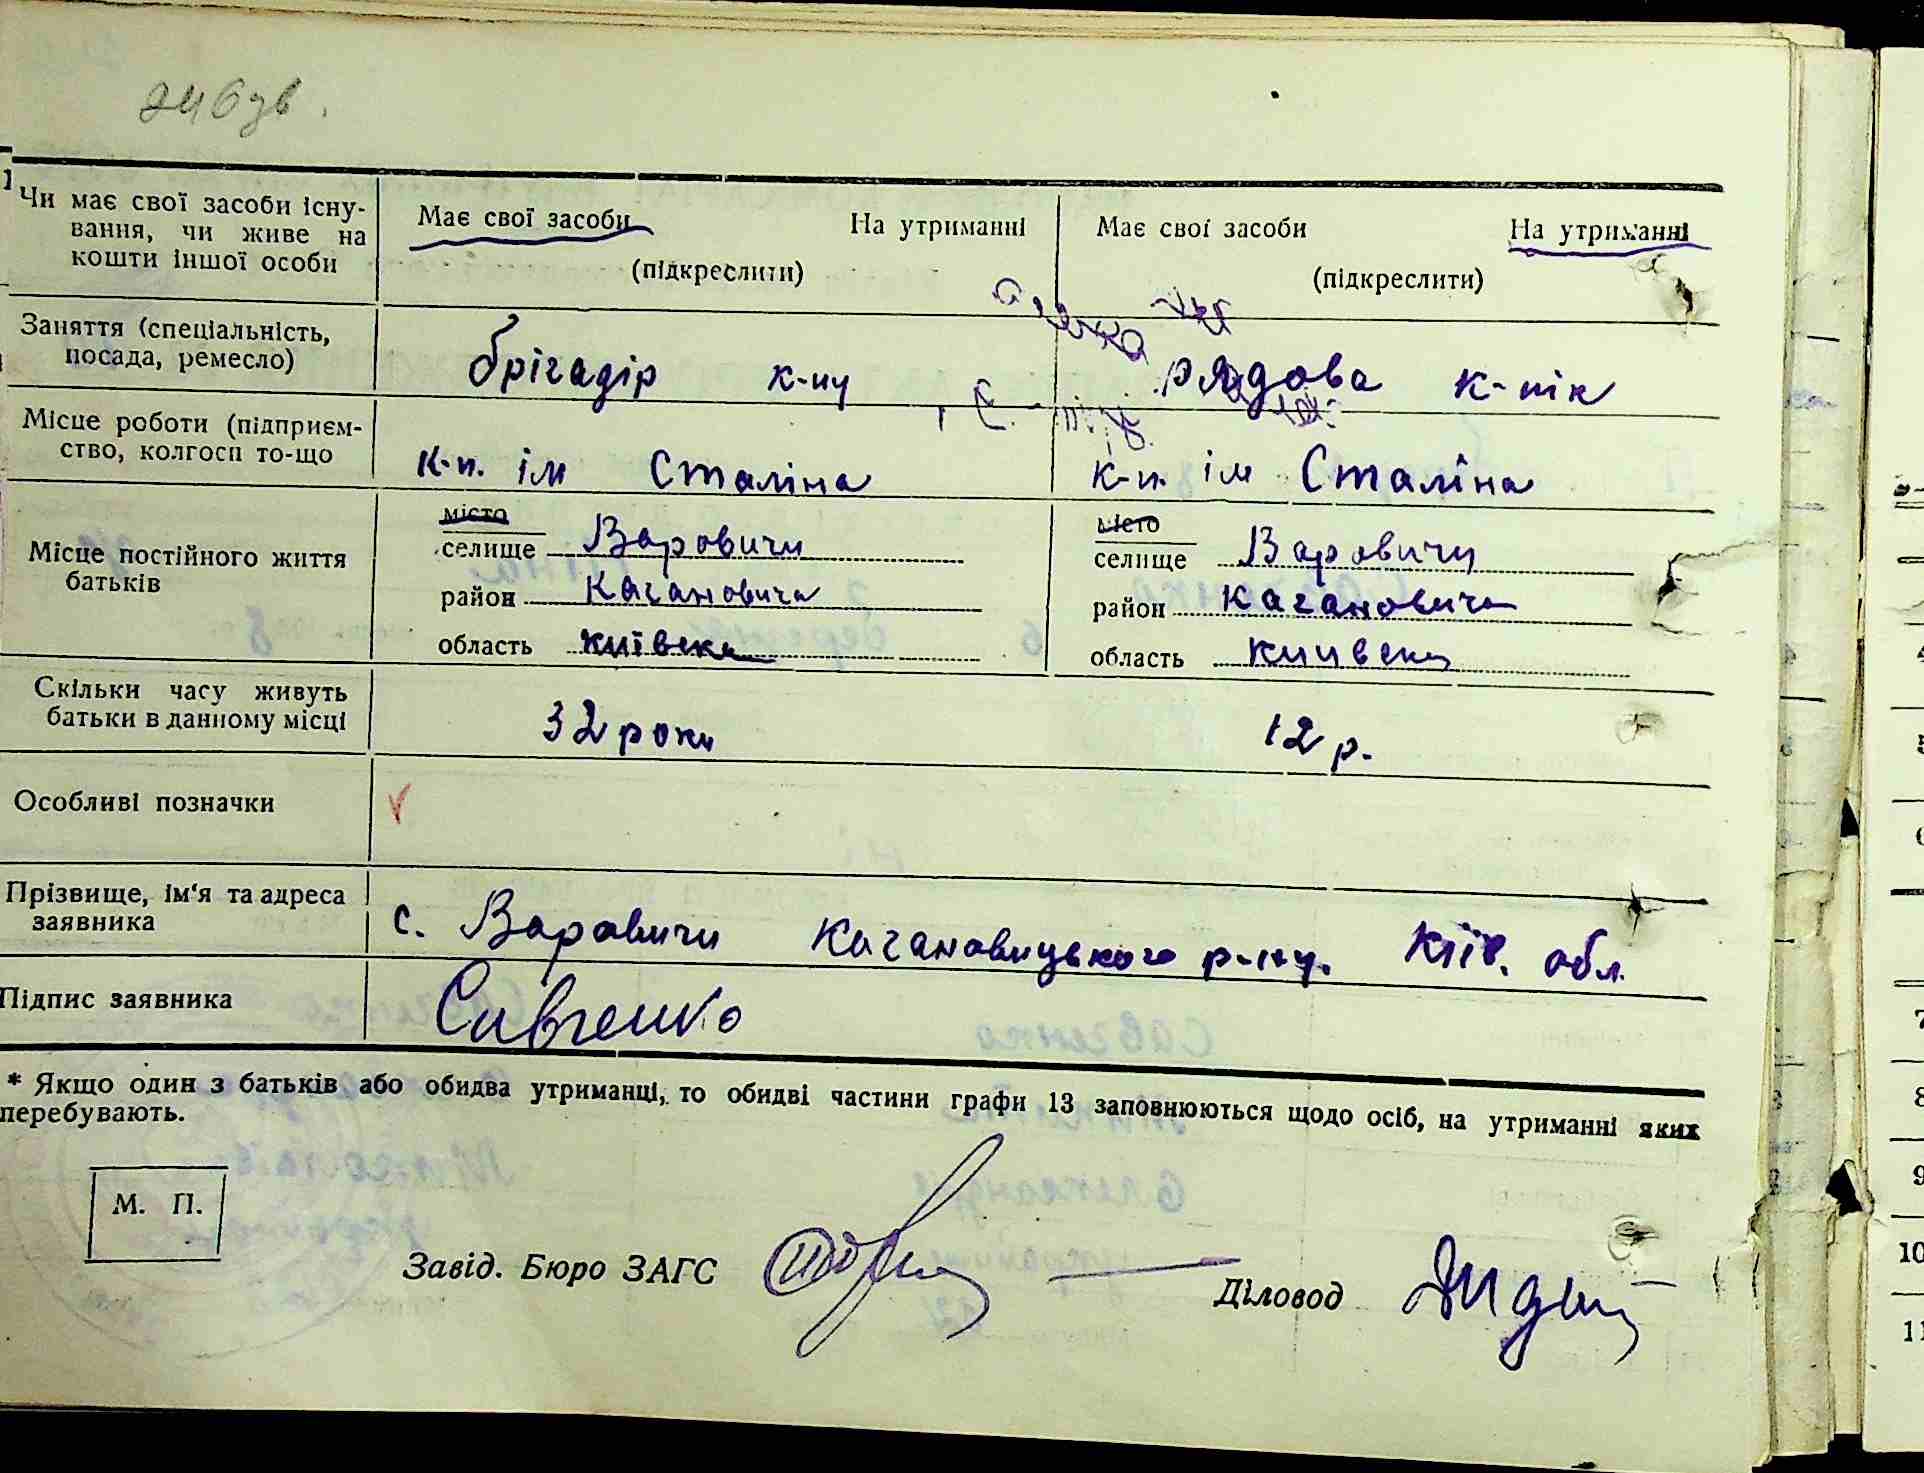 246 зв.
Чи має свої засоби існу-
вання, чи живе на
кошти іншої особи
Має свої засоби На утриманні
(підкреслити)
Має свої засоби На утриманні
(підкреслити)
Заняття (спеціальність,
посада, ремесло)
брігадір к-пу
рядова к-пік
Місце роботи (підприєм-
ство, колгосп то-що
к-п. ім Сталіна
к-п. ім Сталіна
Місце постійного життя
батьків
місто
селище Варовичи
район Кагановича
область Київска
місто
селище Варовичи
район Кагановича
область
Скільки часу живуть
батьки в данному місці
32 роки
12 р.
Особливі позначки
Прізвище, ім'я та адреса
заявника
с. Варовичи Кагановицького р-ну. Київ. обл.
Підпис заявника
Савченко
* Якщо один з батьків або обидва утриманці, то обидві частини графи 13 заповнюються щодо осіб, на утриманні яких
перебувають.
М. П.
Завід. Бюро ЗАГС
Діловод
5
6
7
8
9
10
11